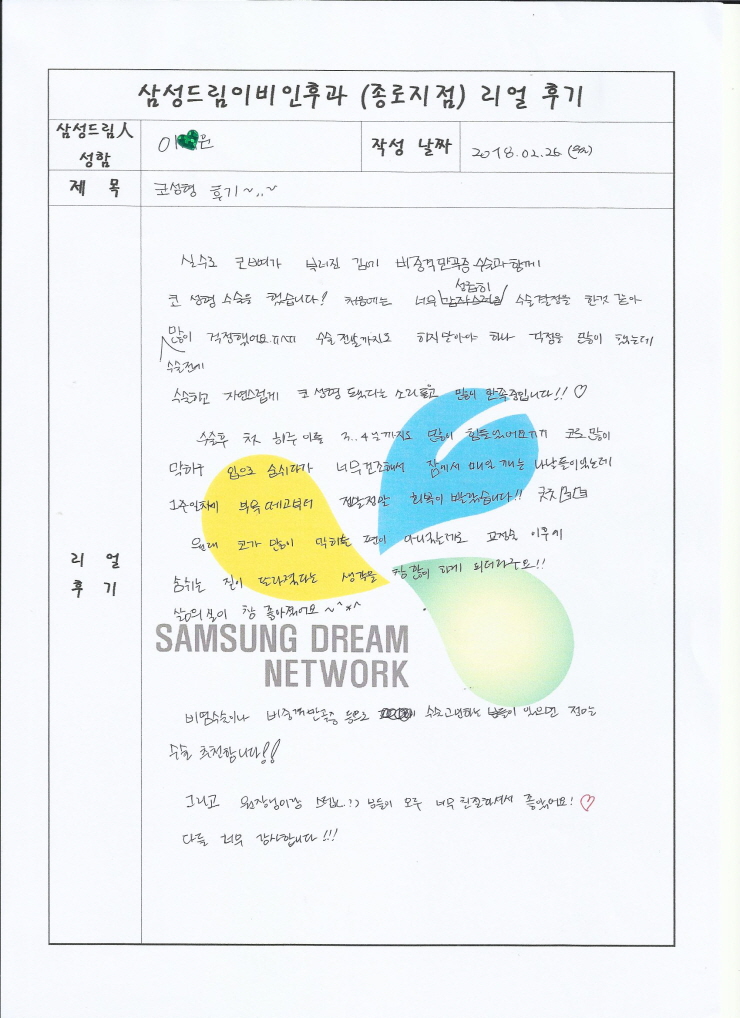 삼성드림이비인후과 (종로지점) 리얼 후기
삼성드림人 성함
이 윤
작성 날짜
2018.02.26 (월)
제 목
코성형 후기~..~
리 얼 후 기
실수로 코뼈가 부러진 김에 비중격만곡증 수술과 함께
코 성형 수술을 했습니다! 처음에는 너무 성급히 수술결정을 한것 같아
많이 걱정했어요.ㅠㅠ 수술 전날까지도 하지말아야 하나 걱정을 많이 했는데
수술전에
수술하고 자연스럽게 코 성형 됐다는 소리 듣고 많이 만족중입니다!! ♡
수술후 첫 하루 이틀 3..4일까지도 많이 힘들었어요ㅠㅠ 코로 많이
막히구 입으로 숨쉬다가 너무건조해서 잠에서 매일 깨는 나날들이었는데
1주일차에 부목 떼고부터 정말정말 회복이 빨랐습니다!! 굿
원래 코가 많이 막히는 편이 아니었는데도 교정술 이후에
숨쉬는 질이 또라졌다는 생각을 참 많이 하게 되더라구요!!
삶의 질이 참 좋아졌어요 ~^*^
SAMSUNG DREAM
NETWORK
비염수술이나 비중격만곡증 등으로 수술고민하는 분들이 있으면 저는
수술 추천합니다!!
그리고 원장님이랑 스텝(..?) 분들이 모두 너무 친절하셔서 좋았어요! ♡
다들 너무 감사합니다!!!